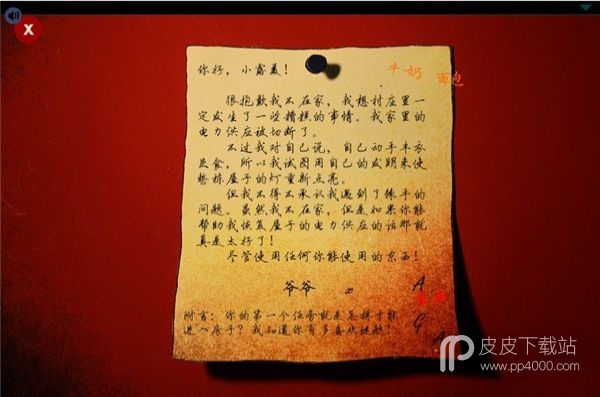 X
你好，小露美！
牛奶 面包
很抱歉我不在家，我想村庄里一
定发生了一些糟糕的事情。我家里的
电力供应被切断了。
不过我对自己说，自己动手丰衣
足食，所以我试图用自己的发明来使
整栋屋子的灯重新点亮。
但我不得不承认我遇到了棘手的
问题。虽然我不在家，但是如果你能
帮助我恢复屋子的电力供应的话那就
真是太好了！
尽管使用任何你能使用的东西！
爷爷
A
G
附言：你的第一个任务就是怎样才能
进入房子？我知道你有多喜欢谜题！
皮皮下载站
www.pp4000.com